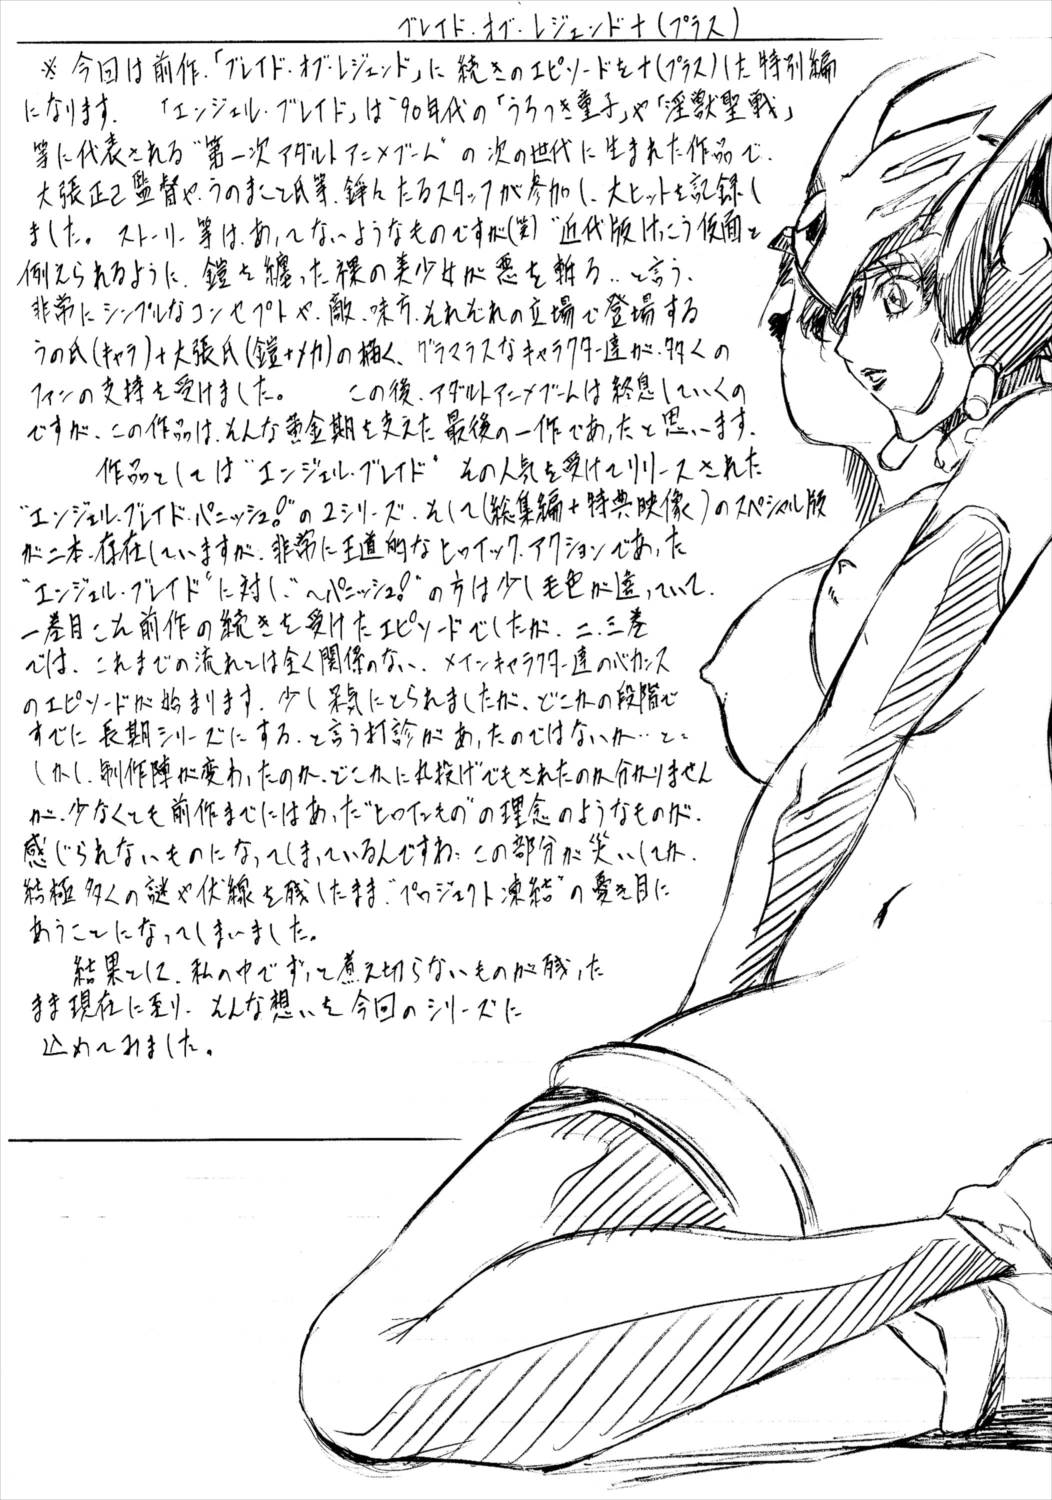 ブレイド・オブ・レジェンド+(プラス)
※ 今回は前作、「ブレイド・オブ・レジェンド」に続きのエピソードを+(プラス)した特別編
になります。 「エンジェル・ブレイド」は'90年代の「うろつき童子」や「淫獣聖戦」
等に代表される"第一次アダルトアニメブーム"の次の世代に生まれた作品で、
大張正己監督や、うのまこと氏等、錚々たるスタッフが参加し、大ヒットを記録し
ました。ストーリー等は、あってないようなものですが(笑)"近代版けっこう仮面"と
例えられるように、鎧を纏った裸の美少女が悪を斬る‥と言う、
非常にシンプルなコンセプトや、敵、味方、それぞれの立場で登場する
うの氏(キャラ)+大張氏(鎧+メカ)の描く、グラマラスなキャラクター達が、多くの
ファンの支持を受けました。 この後、アダルトアニメブームは終息していくの
ですが、この作品は、そんな黄金期を支えた最後の一作であったと思います。
作品としては"エンジェル・ブレイド" その人気を受けてリリースされた
"エンジェル・ブレイド・パニッシュ!"の2シリーズ、そして(総集編+特典映像)のスペシャル版
が二本、存在していますが、非常に王道的なヒロイック・アクションであった
"エンジェル・ブレイド"に対し、"〜パニッシュ!"の方は少し毛色が違っていて、
一巻目こそ前作の続きを受けたエピソードでしたが、二、三巻
では、これまでの流れとは全く関係のない、メインキャラクター達のバカンス
のエピソードが始まります。少し呆気にとられましたが、どこかの段階で
すでに長期シリーズにする、と言う打診があったのではないか‥と‥
しかし、制作陣が変わったのか、どこかに丸投げでもされたのか分かりません
が、少なくても前作までにはあった"とわたもの"の理念のようなものが、
感じられないものになってしまっているんですね‥この部分が災いしてか、
結極多くの謎や伏線を残したまま"プロジェクト凍結"の憂き目に
あうことになってしまいました。
結果として、私の中でずっと煮え切らないものが残った
まま現在に至り、そんな想いを今回のシリーズに
込めてみました。